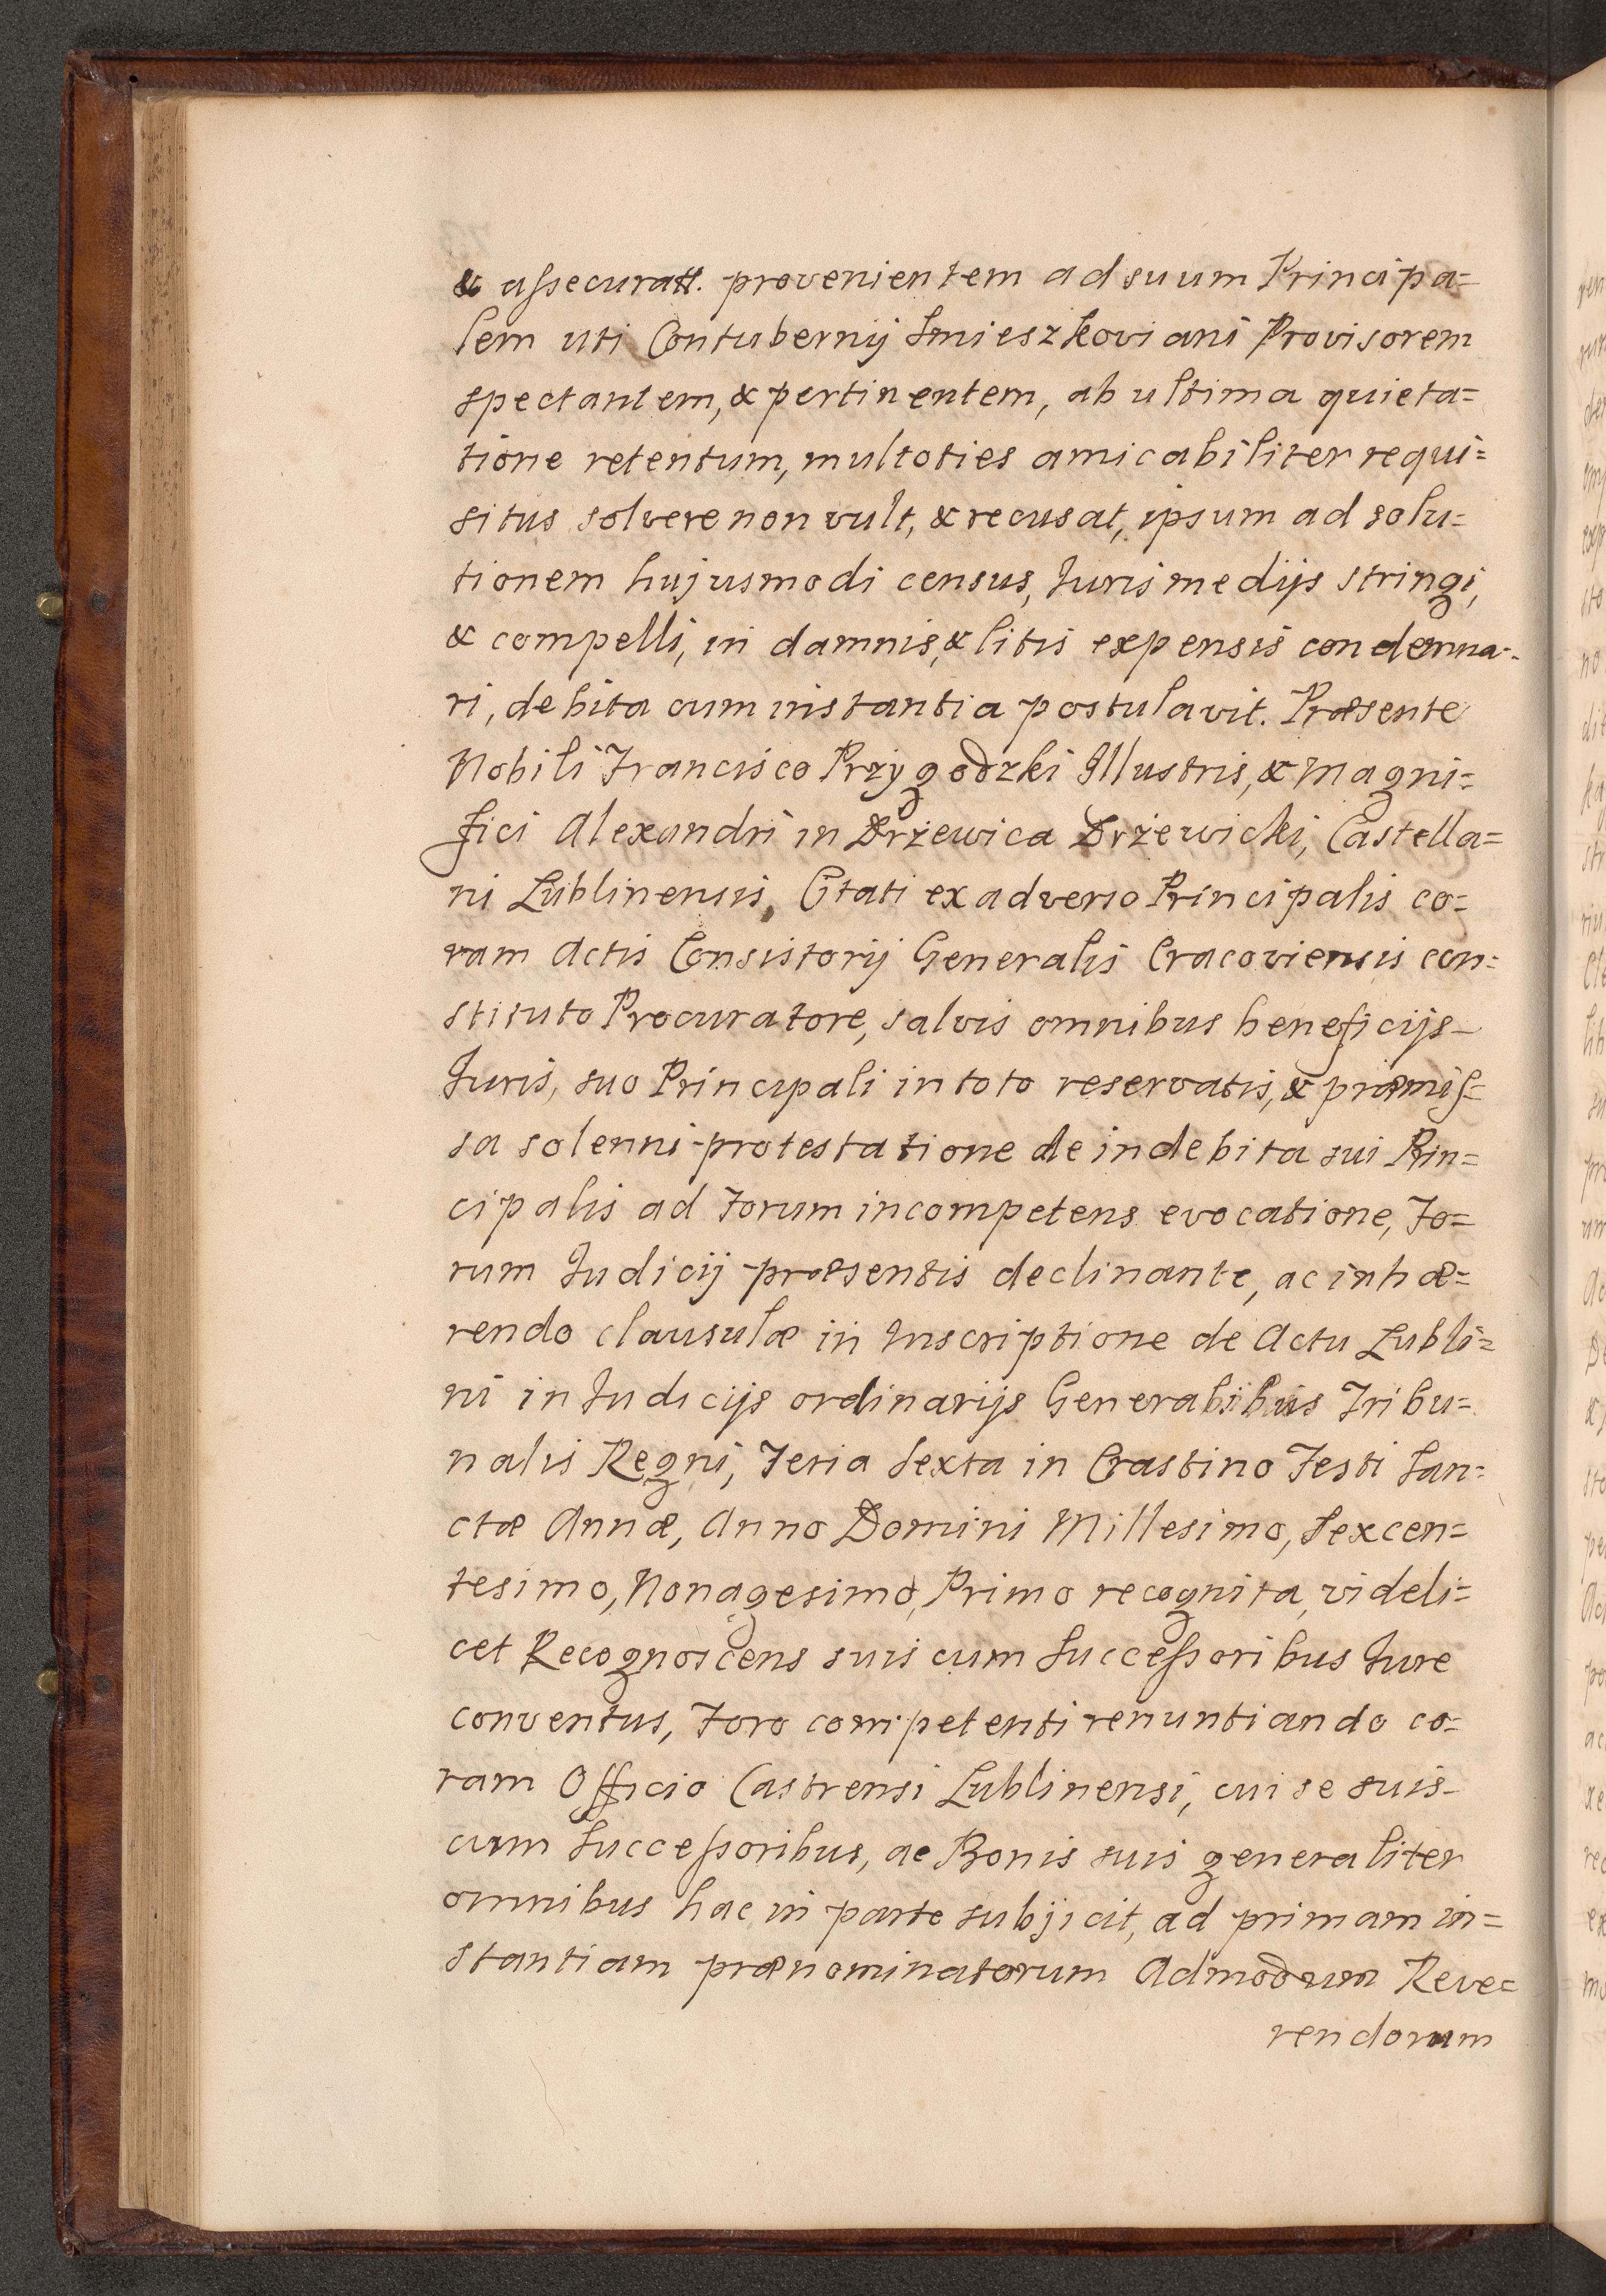 & assecuratt. provenientem ad suum Principa=
lem uti Contubernij Smieszkoviani Provisorem
spectantem, & pertinentem, ab ultima quieta=
tione retentum, multoties amicabiliter requi=
situs solvere non vult, & recusat, ipsum ad solu=
tionem hujusmodi census, Juris medijs stringi,
& compelli, in damnis, & litis expensis condemna=
ri, debita cum instantia postulavit. Præsente
Nobili Francisco Przygodzki Illustris, & Magni=
fici Alexandri in Drżewica Drżewicki, Castella=
ni Lublinensis, Citati ex adverso Principalis co=
ram Actis Consistorij Generalis Cracoviensis con=
stituto Procuratore, salvis omnibus beneficijs
Juris, suo Principali in toto reservatis, & præmis=
sa solenni protestatione de indebita sui Prin=
cipalis ad Forum incompetens evocatione, Fo=
rum Judicij præsentis declinante, ac inhæ=
rendo clausulæ in Inscriptione de Actu Lubli=
ni in Judicijs ordinarijs Generalibus Tribu=
nalis Regni, Feria Sexta in Crastino Festi San=
ctæ Annæ, Anno Domini Millesimo, Sexcen=
tesimo, Nonagesimo, Primo recognita, videli=
cet Recognoscens suis cum Successoribus Jure
conventus, Foro competenti renuntiando co=
ram Officio Castrensi Lublinensi, cui se suis
cum Successoribus, ac Bonis suis generaliter
omnibus hac in parte subjicit, ad primam in=
stantiam prænominatorum Admodum Reve=
rendorum